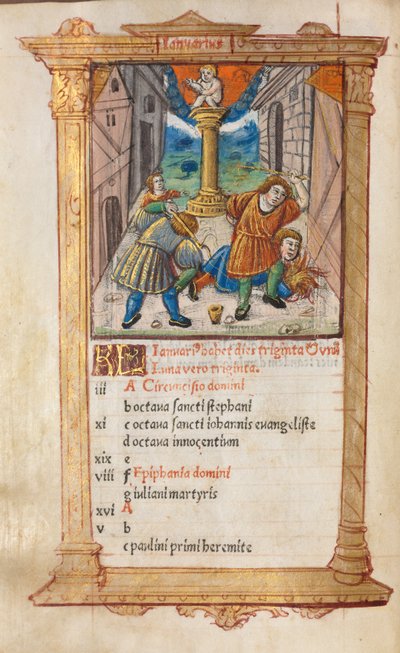 Ianuarius
KL Ianuari9 habet dies triginta Vnū
Luna vero triginta.
iii A Circuncisio domini
b octaua sancti stephani
xi c octaua sancti iohannis euangeliste
d octaua innocentium
xix e
viii f Epiphania domini
g iuliani martyris
xvi A
v b
c paulini primi heremite